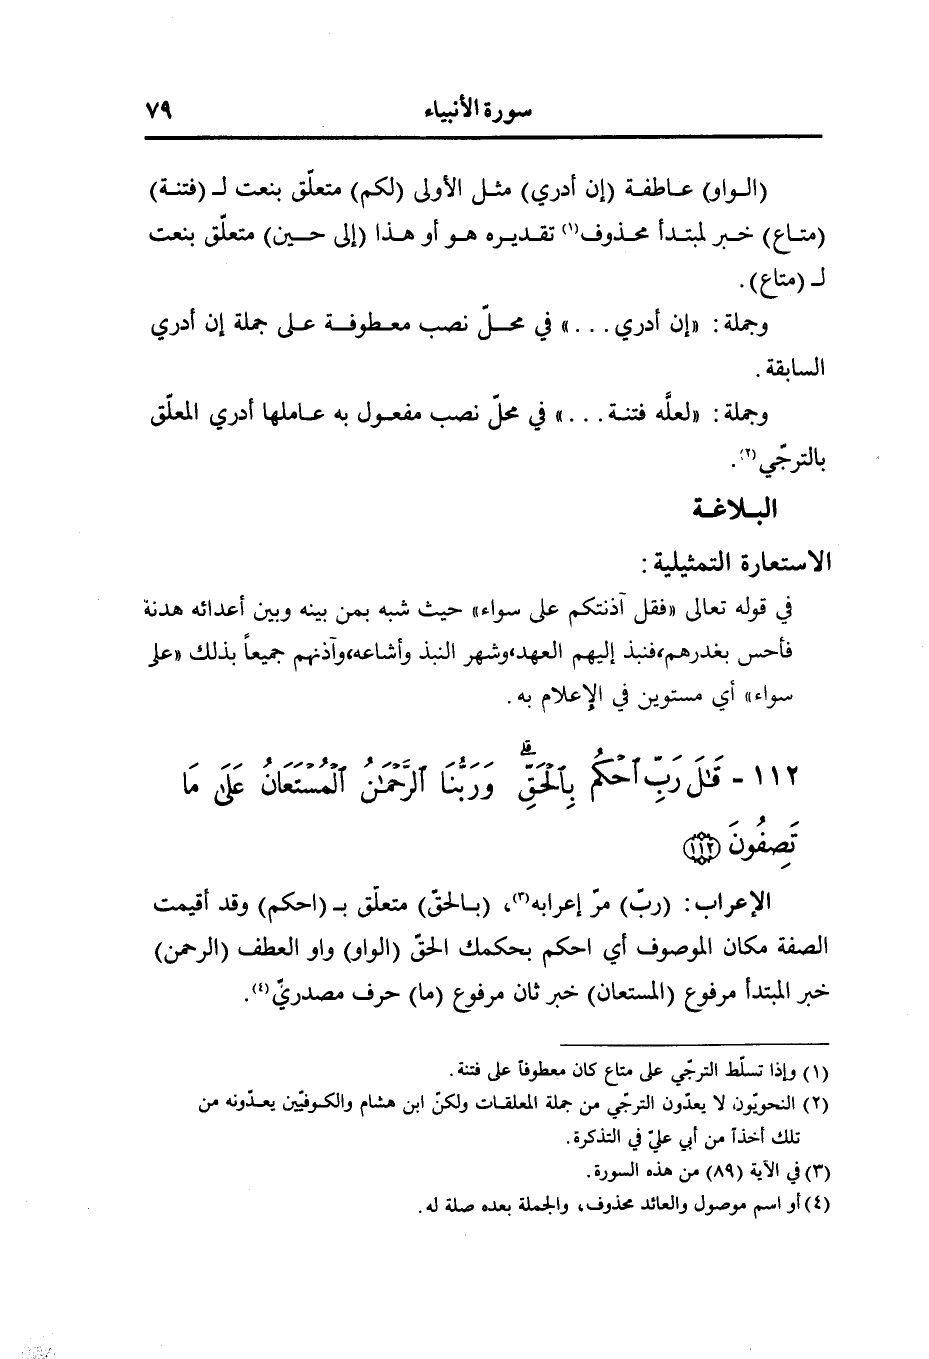 سورة الأنبياء ٧٩
(الـواو) عـاطفـة (إن أدري) مثـل الأولى (لكم) متعلّق بنعت لـ (فتنـة)
(متـاع) خـبر لمبتـدأ محـذوف(١) تقـديـره هـو أو هـذا (إلى حـــين) متعلّق بنعت
لـ (متاع).
وجملة: «إن أدري ...» في محـــلّ نصب معـطوفـــة عـلى جملة إن أدري
السابقة.
وجملة: «لعلَّه فتنـة ...» في محلّ نصب مفعـول به عـاملها أدري المعلّق
بالترجّي(٢).
البـلاغـة
الاستعارة التمثيلية:
في قوله تعالى «فقل آذنتكم على سواء» حيث شبه بمن بينه وبين أعدائه هدنة
فأحس بغدرهم،فنبذ إليهم العهد،وشهر النبذ وأشاعه،وآذنهم جميعاً بذلك «على
سواء» أي مستوين في الإعلام به.
١١٢ - قَـٰلَ رَبِّ ٱحْكُم بِٱلْحَقِّ ۗ وَرَبُّنَا ٱلرَّحْمَـٰنُ ٱلْمُسْتَعَانُ عَلَىٰ مَا
تَصِفُونَ ﴿١١٢﴾
الإعراب: (ربّ) مرّ إعرابه(٣)، (بـالحقّ) متعلّق بـ (احكم) وقد أقيمت
الصفة مكان الموصوف أي احكم بحكمك الحقّ (الواو) واو العطف (الرحمن)
خبر المبتدأ مرفوع (المستعان) خبر ثان مرفوع (ما) حرف مصدريّ(٤).
(١) وإذا تسلّط الترجّي على متاع كان معطوفاً على فتنة.
(٢) النحويّون لا يعدّون الترجّي من جملة المعلقـات ولكنّ ابن هشام والكـوفيّين يعـدّونه من
تلك أخذاً من أبي عليّ في التذكرة.
(٣) في الآية (٨٩) من هذه السورة.
(٤) أو اسم موصول والعائد محذوف، والجملة بعده صلة له.